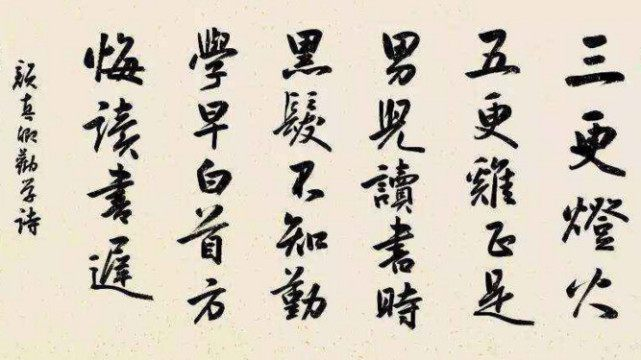 三更燈火
五更雞正是
男兒讀書時
黑髮不知勤
學早白首方
悔读書遲
顏真卿勸学詩